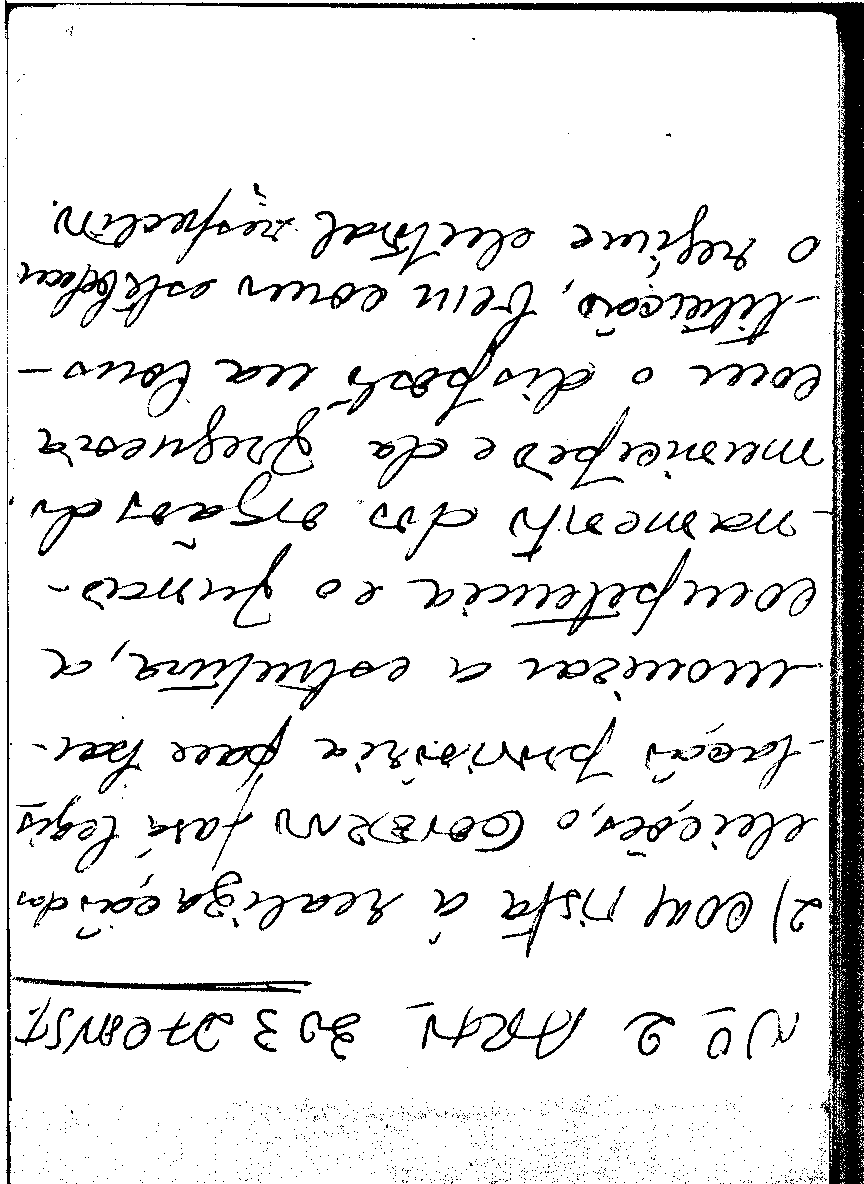 Nº 2 ARTº 303 DA CONST.
2) Com vista à realização das
eleições, o Governo fará legis
-lação provisória para har-
-monizar a estrutura, a
competência e o funcio-
-namento dos orgãos do
município e da freguesia
com o disposto na Cons-
-tituição, bem como estabelecer
o regime eleitoral respectivo.